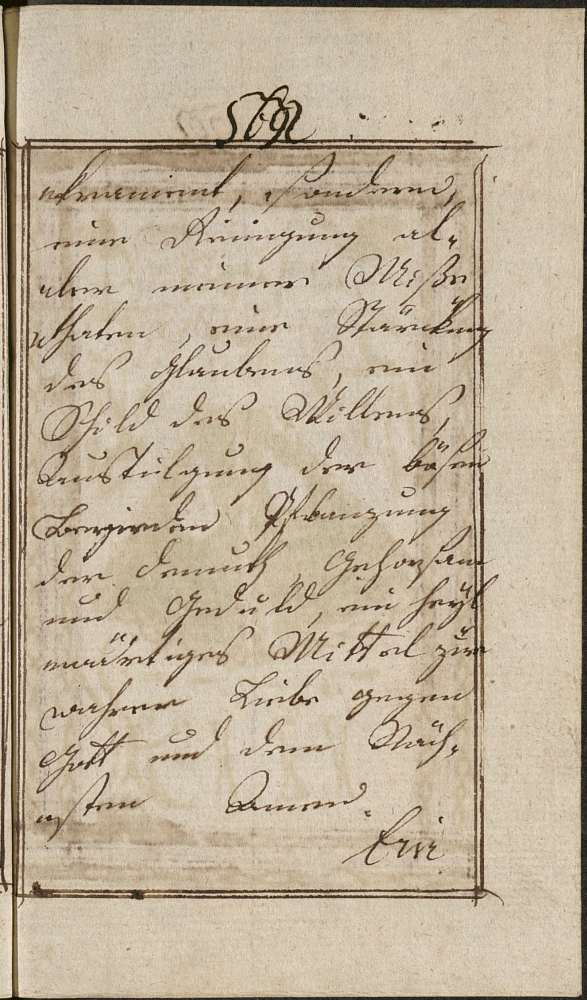 akrament, sondern,
eine Reinigung al-
aler meiner Miße
thaten, eine Stärckung
des Glaubens, ein
Schild des Willens,
Austilgung der bösen
Bergirden Pflanzung
der Demuth, Gehorsam
und Geduld, ein heyl
wärtiges Mittel zur
wahrer Liebe gegen
Gott und dem Näch-
sten Amen.
Ein